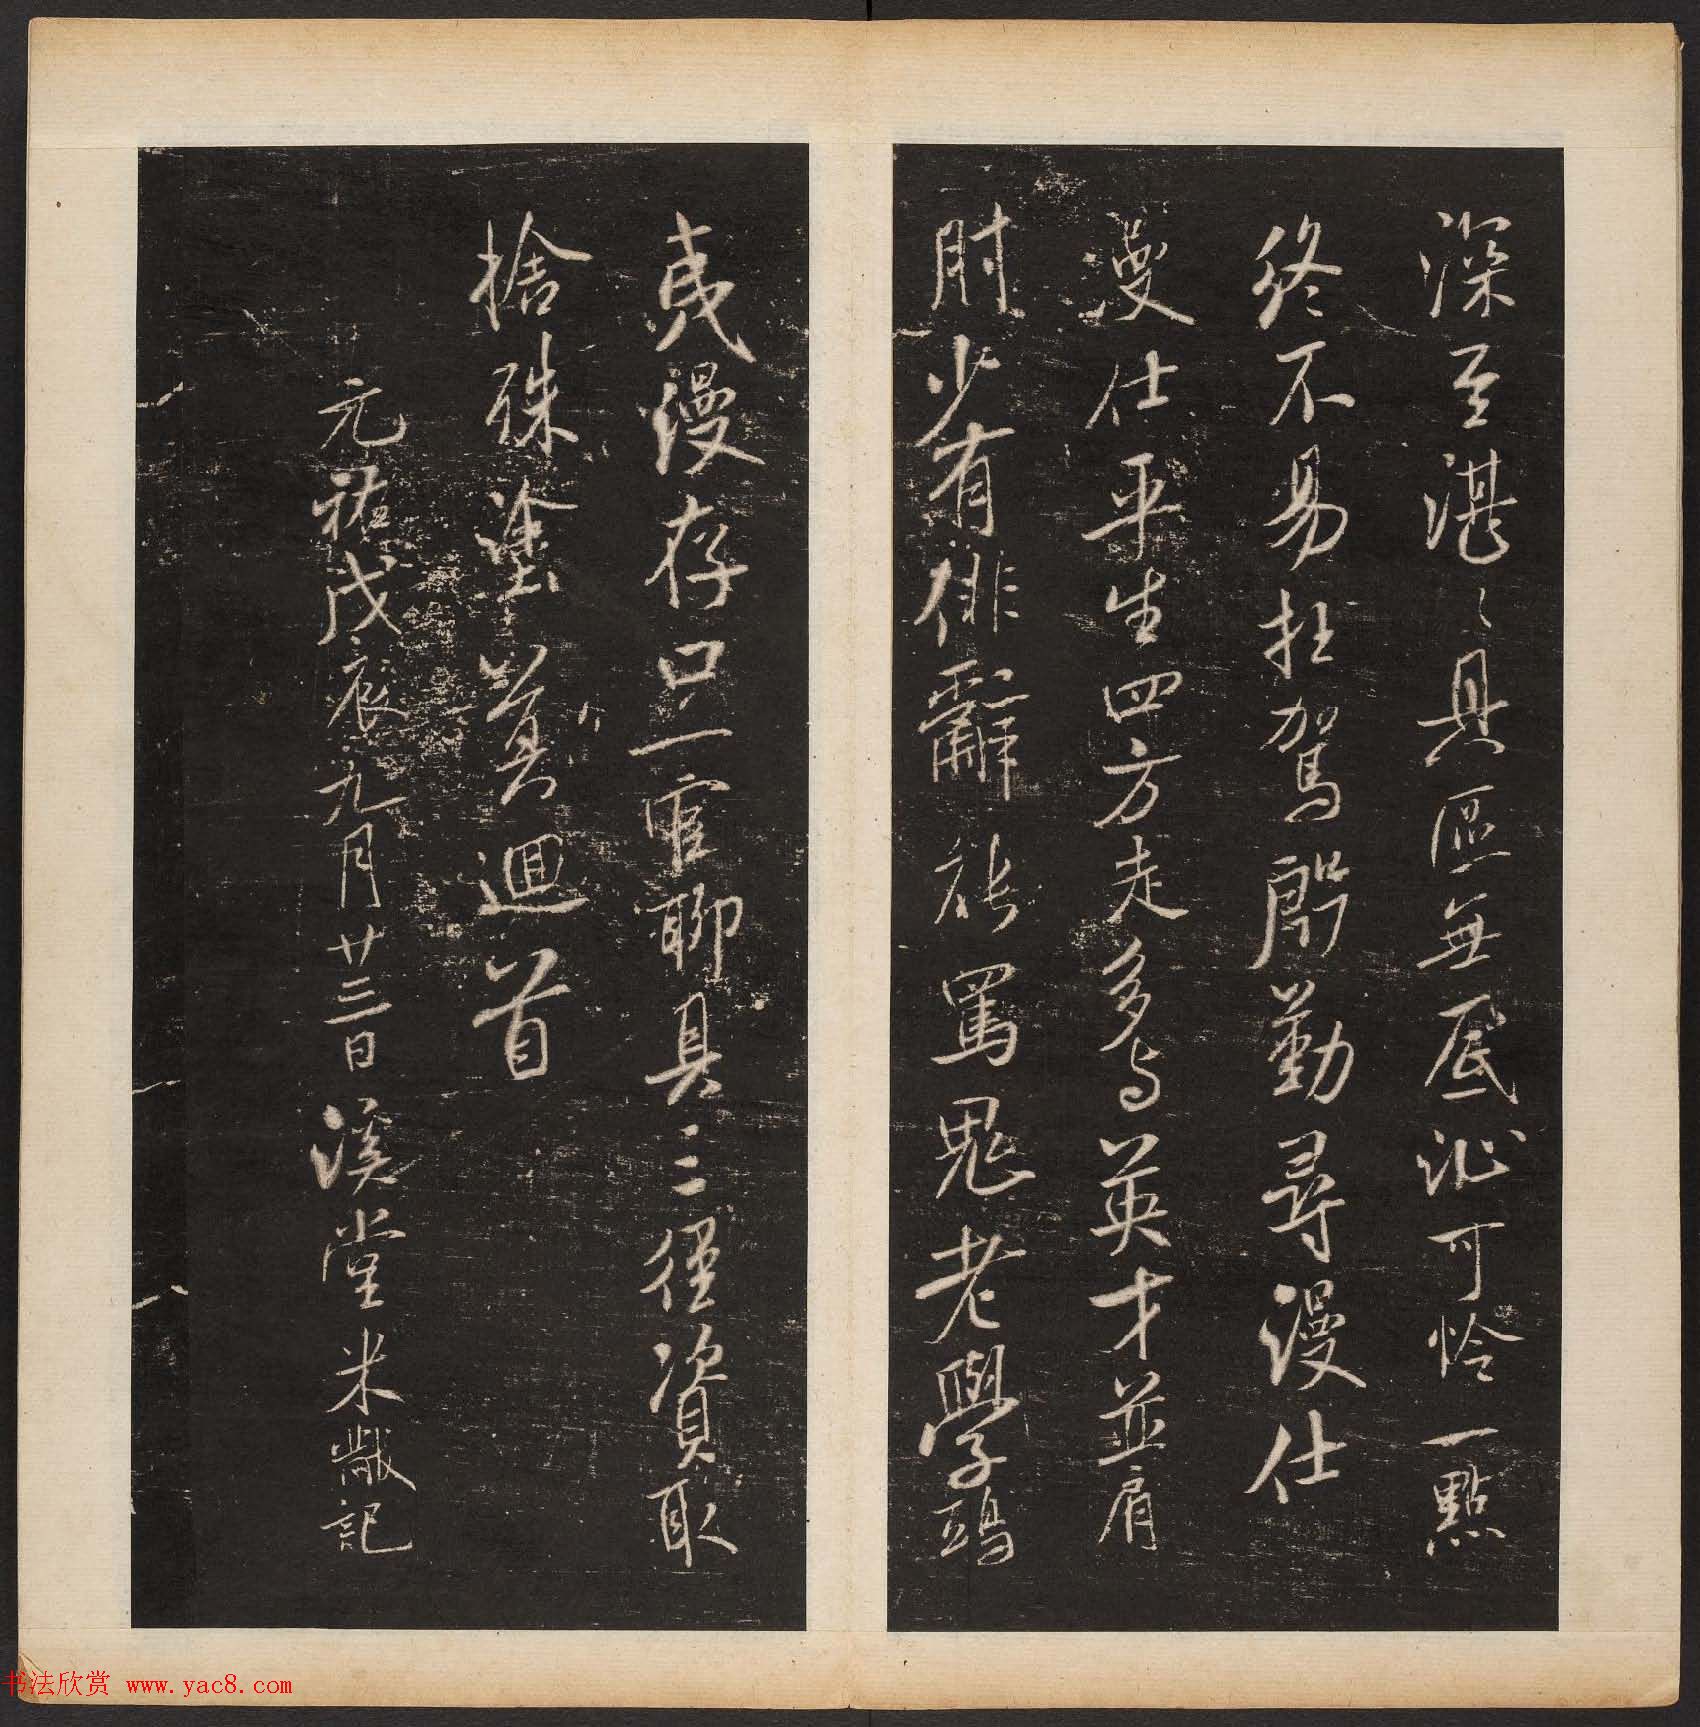 深至湛〻具區無底沚可怜一點
終不易枉駕殷勤尋漫仕
漫仕平生四方走多与英才並肩
肘少有俳辭能罵鬼老學鴟
夷漫存口一官聊具三徑資取
捨殊塗莫迴首
元祐戊辰九月廿三日溪堂米黻記
书法欣赏 www.yac8.com